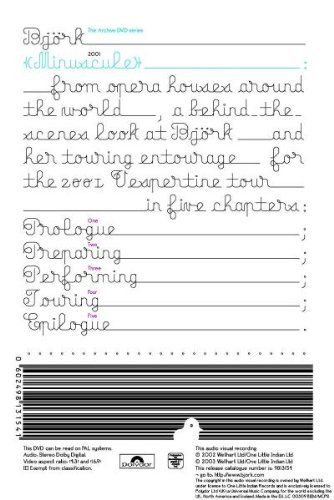 The Archive DVD series
Björk
2001
《Minuscule》 :
from opera houses around
the world , a behind-the-
scenes look at Björk and
her touring entourage for
the 2001 Vespertine tour
in five chapters :
One
Prologue ;
Two
Preparing ;
Three
Performing ;
Four
Touring ;
Five
Epilogue .
0 602498 131541
This DVD can be read on PAL systems.
Audio: Stereo Dolby Digital.
Video aspect ratio: 14:9 and 16:9.
E Exempt from classification.
polydor
This audio visual recording
© 2002 Wellhart Ltd/One Little Indian Ltd
© 2003 Wellhart Ltd/One Little Indian Ltd
This release catalogue number is: 9813154
> go to: http://www.bjork.com
The copyright in this audio visual recording is owned by Wellhart Ltd,
under license to One Little Indian Records and is exclusively licensed to
Polydor Ltd (UK)/a Universal Music Company, for the world excluding the
UK, North America and Iceland. Made in the EU.